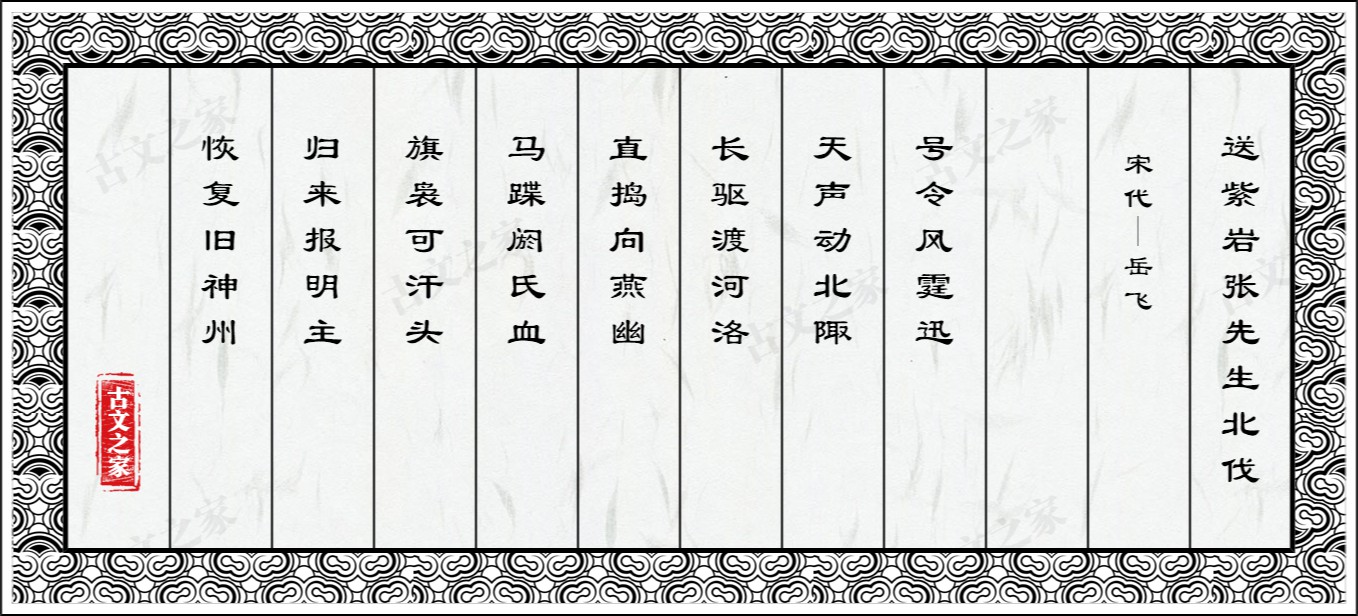 送紫岩张先生北伐
宋代—岳飞
号令风霆迅
天声动北陬
长驱渡河洛
直捣向燕幽
马蹀阏氏血
旗袅可汗头
归来报明主
恢复旧神州
古文之家